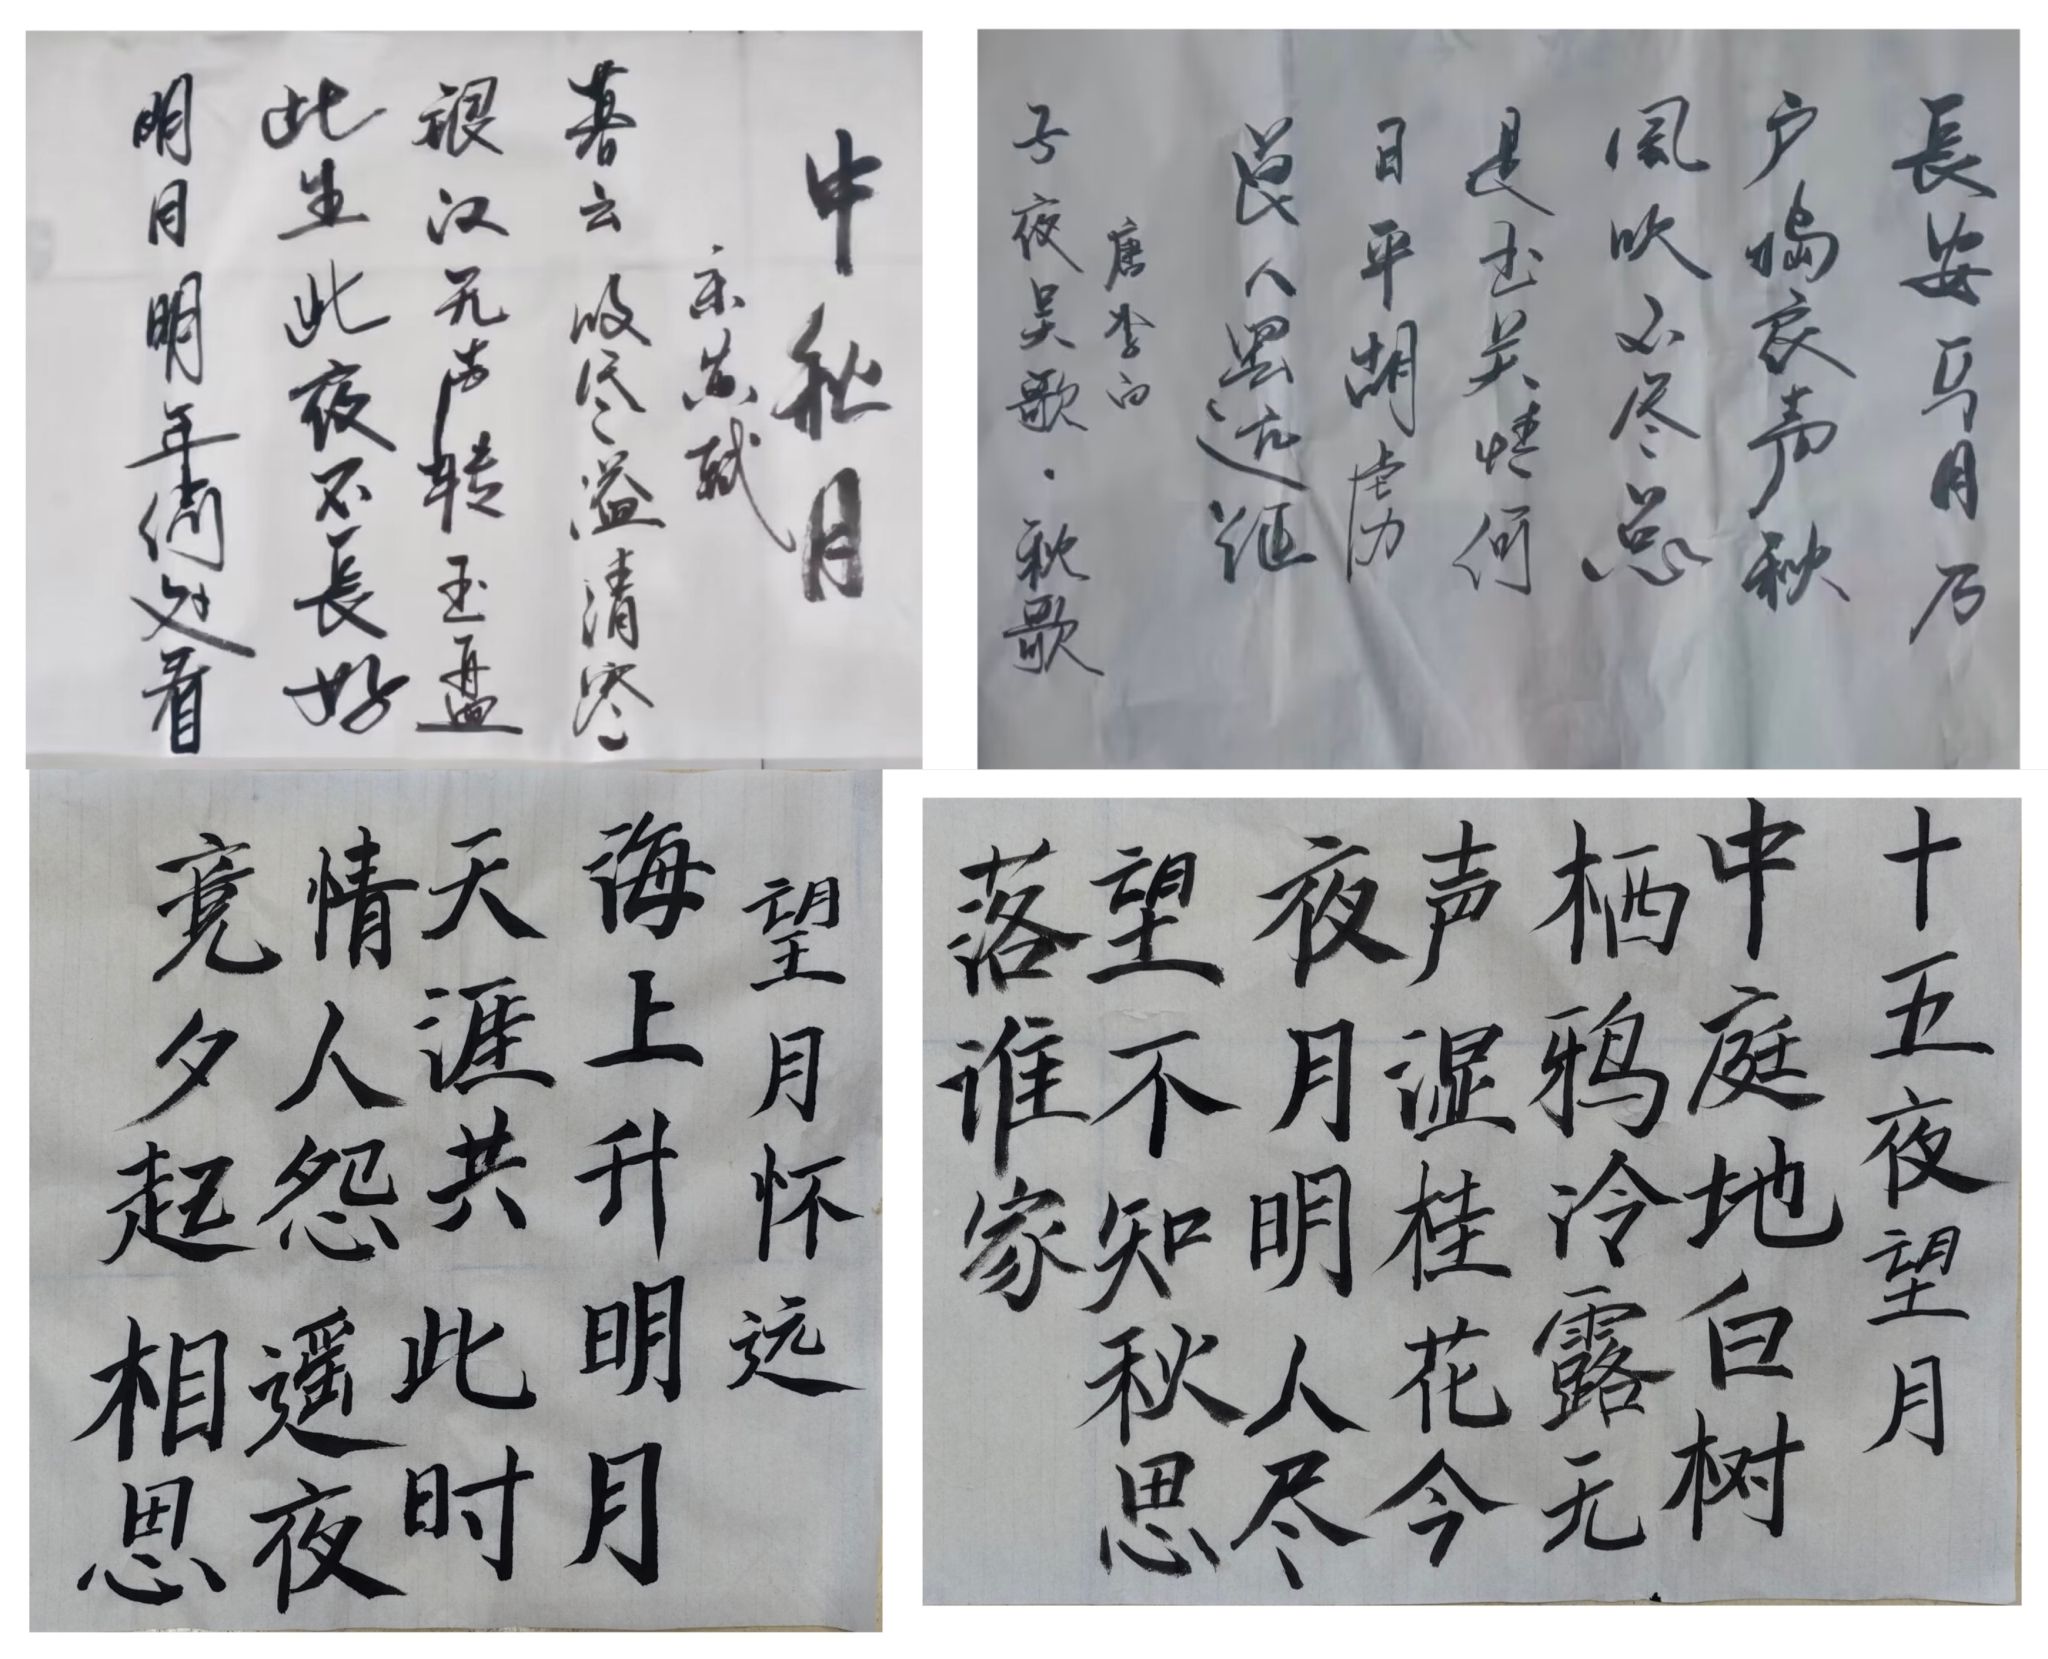 中秋月
宋苏轼
暮云收尽溢清寒
银汉无声转玉盘
此生此夜不長好
明月明年何处看
長安一片月万
户捣衣声秋
風吹不尽总
是玉关情何
日平胡虏
良人罢远征
唐李白
子夜吴歌·秋歌
望月怀远
海上升明月
天涯共此时
情人怨遥夜
竟夕起相思
十五夜望月
中庭地白树
栖鸦冷露无
声湿桂花今
夜月明人尽
望不知秋思
落谁家